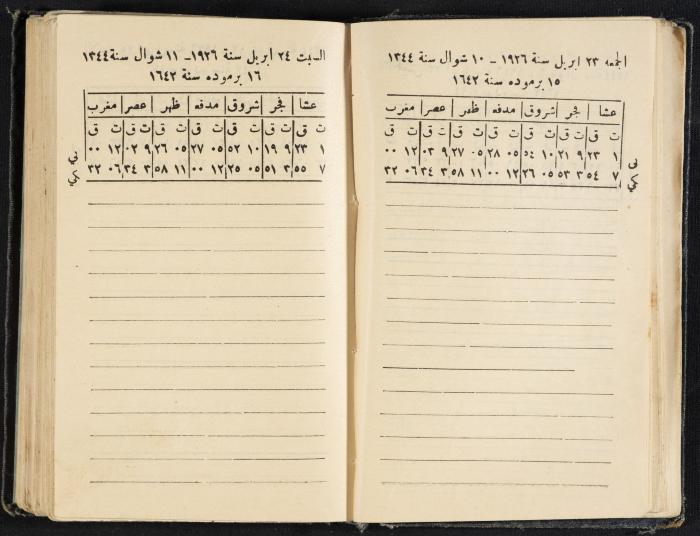 الجمعه ٢٣ ابريل سنة ١٩٢٦ - ١٠ شوال سنة ١٣٤٤
١٥ برموده سنة ١٦٤٢
عشا فجر شروق مدفه ظهر عصر مغرب
ت ق ت ق ت ق ت ق ت ق ت ق ت ق
١ ٢٣ ٩ ٢١ ١٠ ٥٤ ٠٥ ٢٨ ٠٥ ٢٧ ٩ ٠٣ ١٢ ٠٠
٧ ٥٤ ٣ ٥٣ ٠٥ ٢٦ ١٢ ٠٠ ١١ ٥٨ ٣ ٣٤ ٠٦ ٣٢
السبت ٢٤ ابريل سنة ١٩٢٦ - ١١ شوال سنة ١٣٤٤
١٦ برموده سنة ١٦٤٢
عشا فجر شروق مدفه ظهر عصر مغرب
ت ق ت ق ت ق ت ق ت ق ت ق ت ق
١ ٢٣ ٩ ١٩ ١٠ ٥٢ ٠٥ ٢٧ ٠٥ ٢٦ ٩ ٠٢ ١٢ ٠٠
٧ ٥٥ ٣ ٥١ ٠٥ ٢٥ ١٢ ٠٠ ١١ ٥٨ ٣ ٣٤ ٠٦ ٣٢